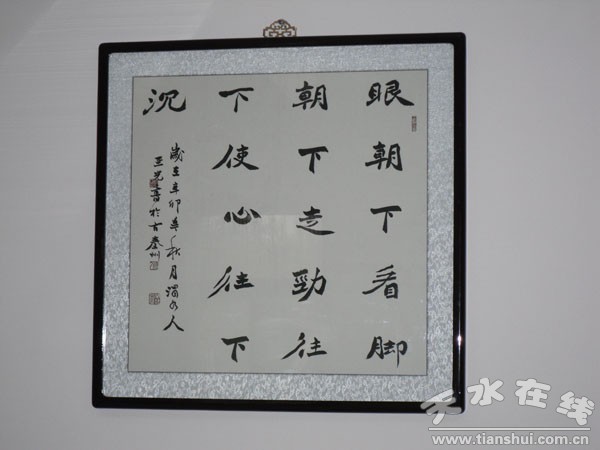 眼朝下看脚
朝下走勁往
下使心往下
沉
歲在辛卯年秋月渭水人
亚光書於古秦州
天水在线
www.tianshui.com.cn